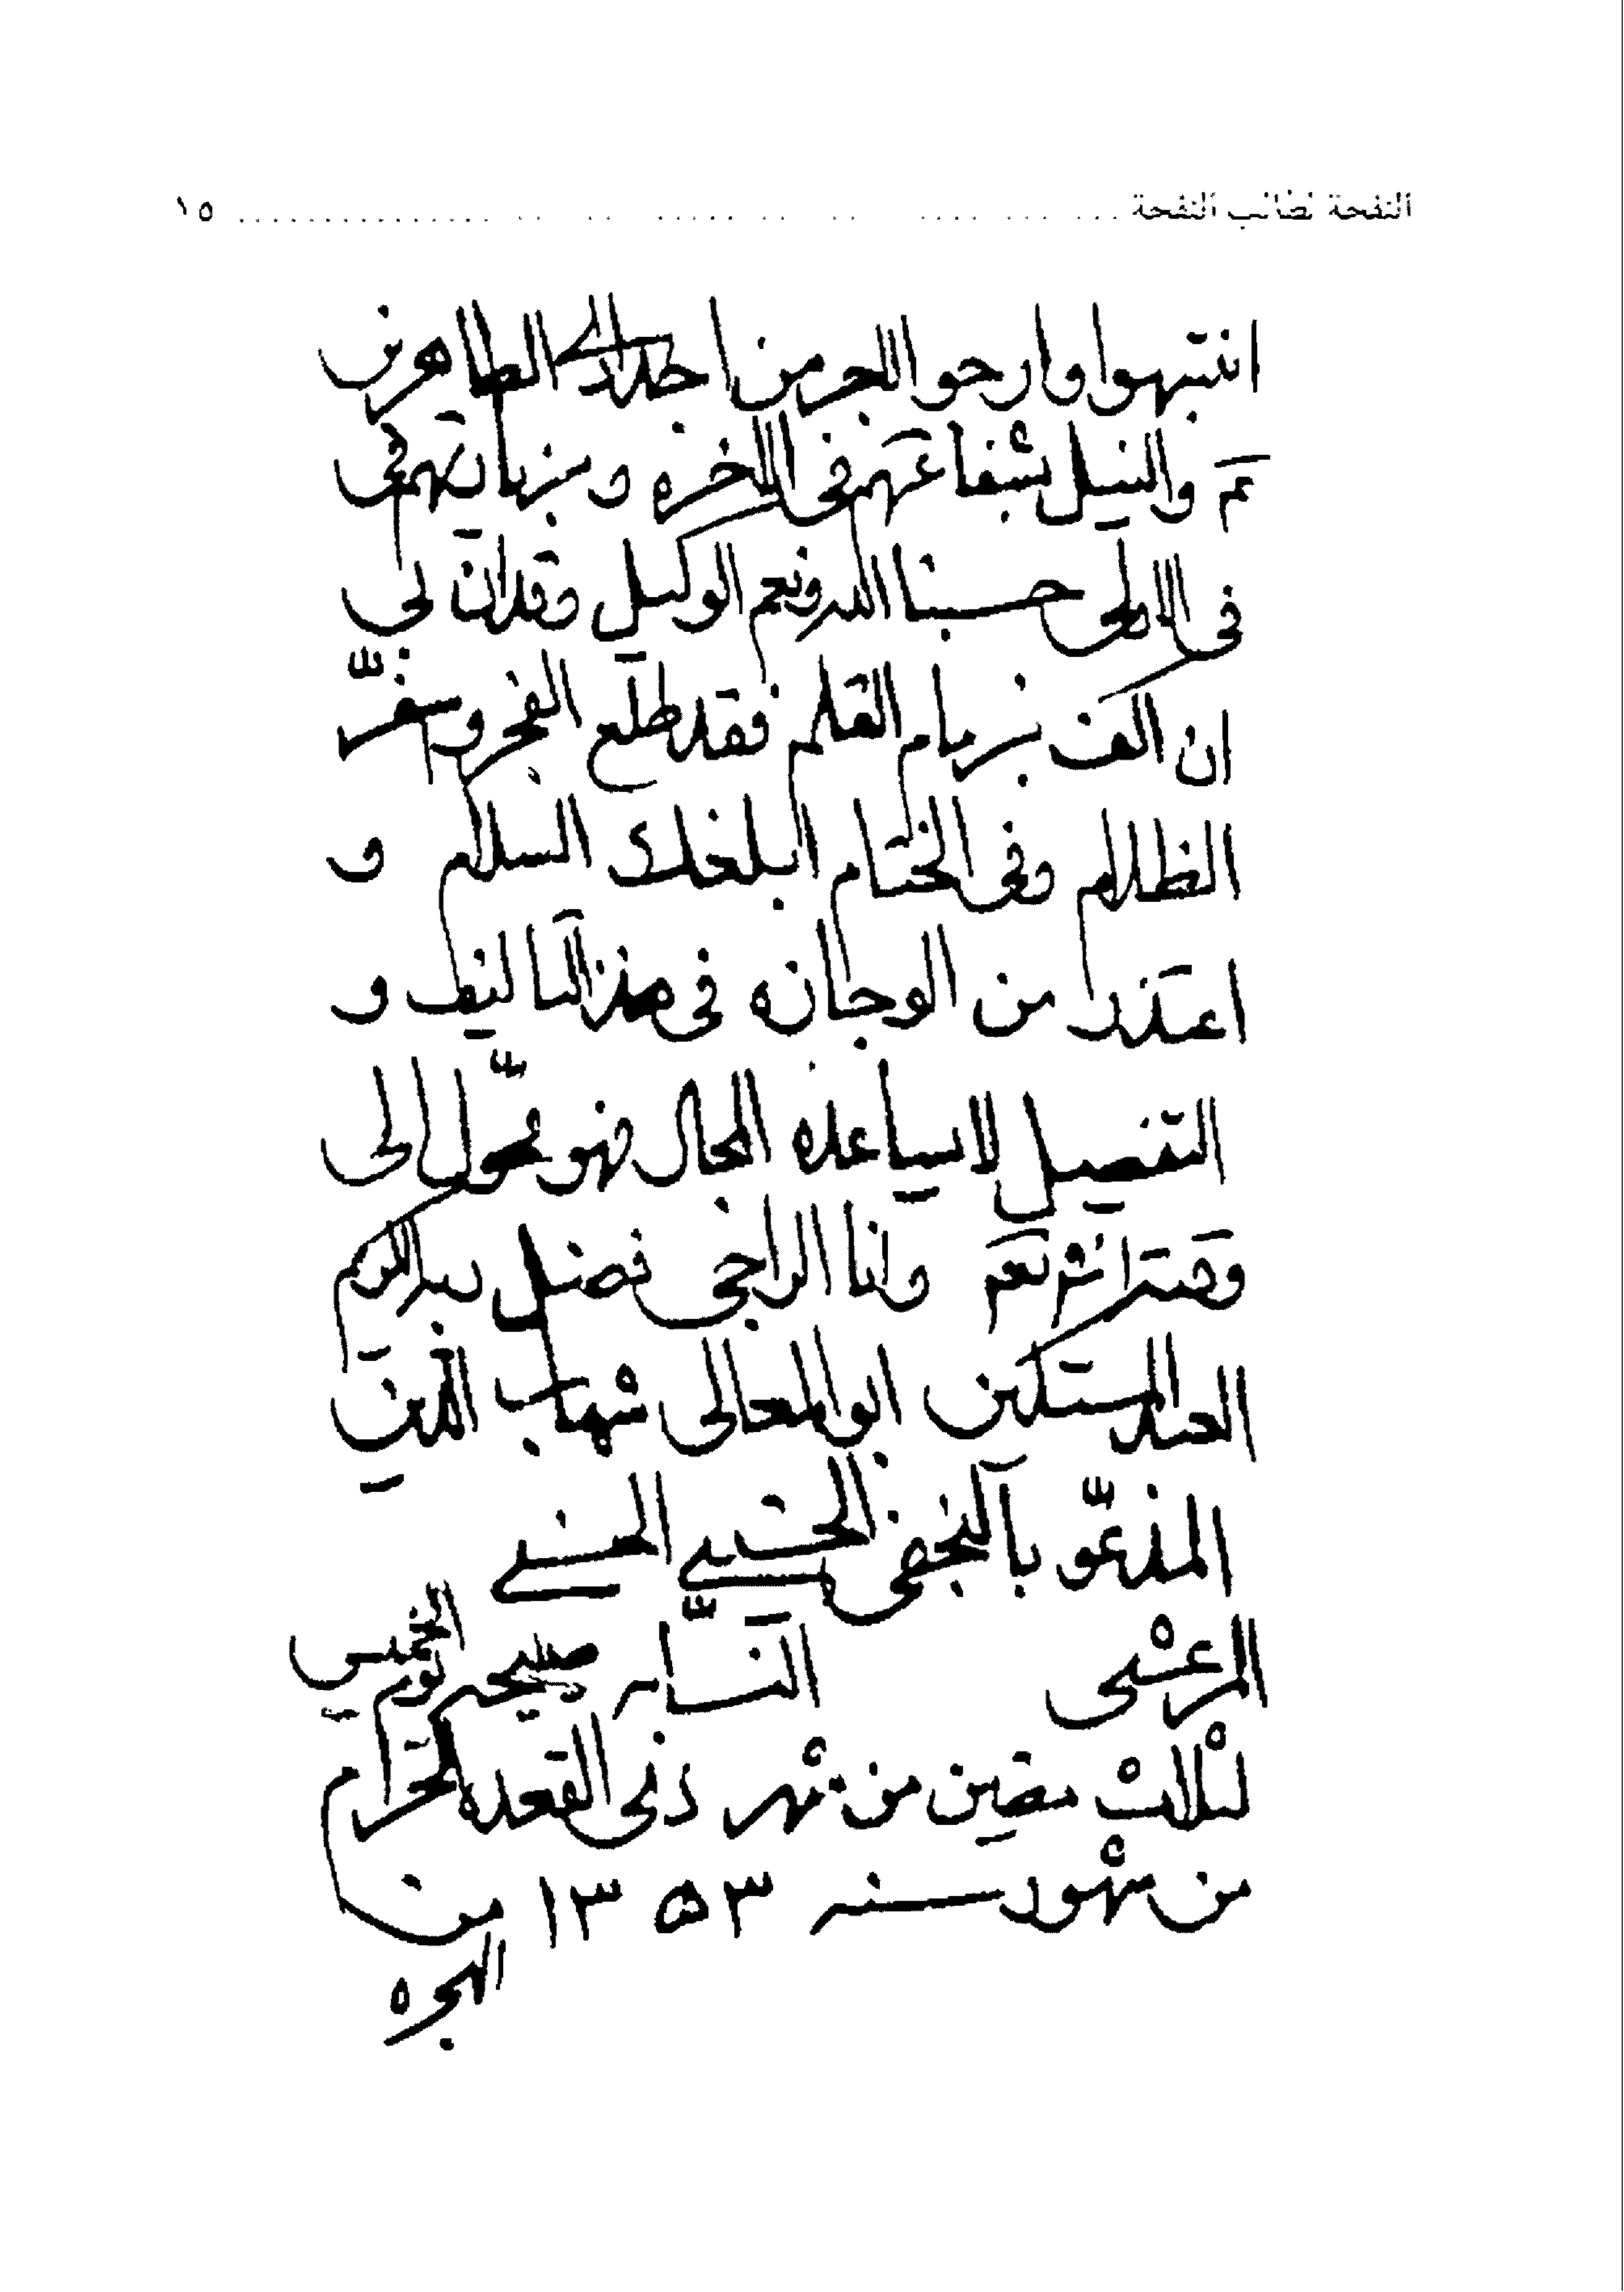 النفحة لطالب النفحة ........ ١٥
انتبهوا وارجو الاجر من اجدادى الطاهرين
والنيل بشفاعتهم فى الاخره و بزيارتهم فى
فى الاولى حسبنا الله ونعم الوكيل وقد ان لى
ان اكف زمام القلم فقد طلع الفجر و سفر
الظلام وفى الختام ابلغك السلام و
اعتذر من الوجازه فى هذا التاليف و
التفصيل لا يساعده المجال فهو محول الى
وانا الراجى فضل ربه الكريم
العبد المستكين ابو المعالى شهاب الدين
المدعو بالنجفى الحسينى الحسنى
المرعشى النسابه صبيحه يوم الخميس
لثلاث مضين من شهر ذى القعده الحرام
من شهور سنه ١٣٥٣ من
الهجره